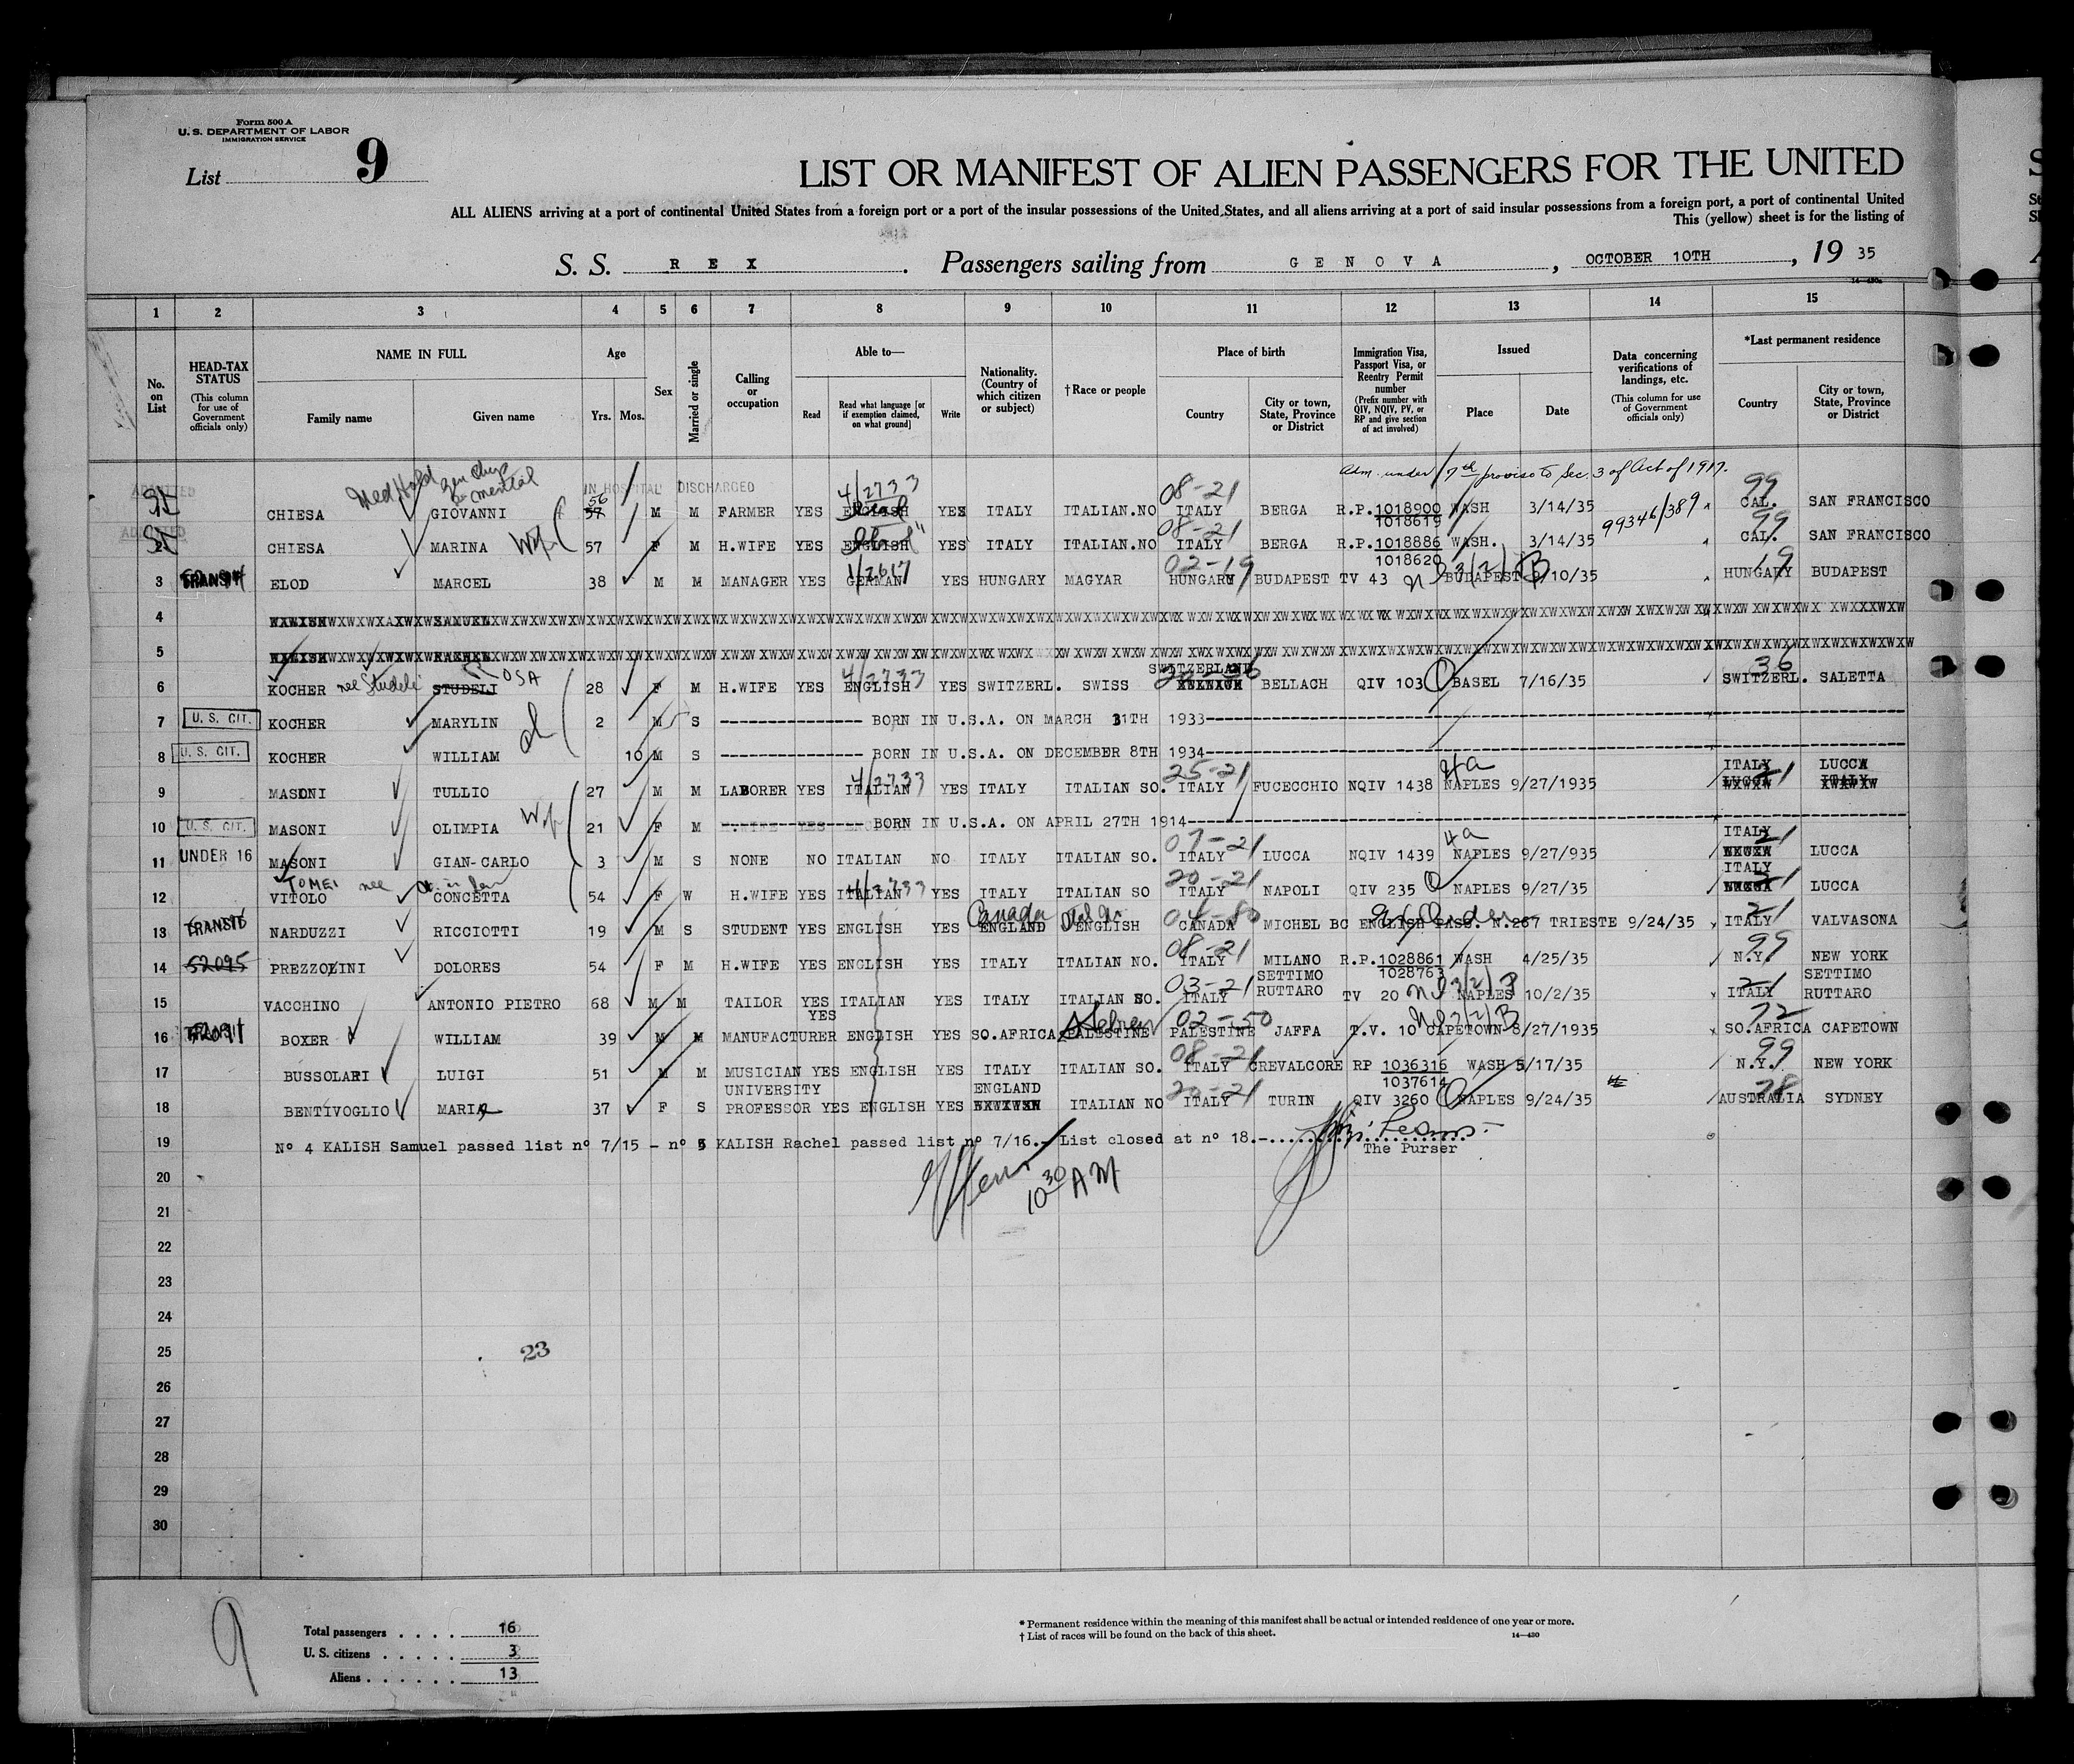 Form 500 A
U. S. DEPARTMENT OF LABOR
IMMIGRATION SERVICE
List 9
LIST OR MANIFEST OF ALIEN PASSENGERS FOR THE UNITED
ALL ALIENS arriving at a port of continental United States from a foreign port or a port of the insular possessions of the United States, and all aliens arriving at a port of said insular possessions from a foreign port, a port of continental United
This (yellow) sheet is for the listing of
S. S. R E X . Passengers sailing from G E N O V A , OCTOBER 10TH , 19 35
1 2 3 4 5 6 7 8 9 10 11 12 13 14 15
No. on List
HEAD-TAX STATUS (This column for use of Government officials only)
NAME IN FULL
Family name Given name
Age
Yrs. Mos.
Sex
Married or single
Calling or occupation
Able to—
Read Read what language [or if exemption claimed, on what ground] Write
Nationality. (Country of which citizen or subject)
†Race or people
Place of birth
Country City or town, State, Province or District
Immigration Visa, Passport Visa, or Reentry Permit number (Prefix number with QIV, NQIV, PV, or RP and give section of act involved)
Issued
Place Date
Data concerning verifications of landings, etc. (This column for use of Government officials only)
*Last permanent residence
Country City or town, State, Province or District
Adm. under 7th proviso to Sec. 3 of Act of 1917.
ADMITTED Med Hold mental IN HOSPITAL DISCHARGED 4/2733 08-21 99
CHIESA GIOVANNI 57 56 M M FARMER YES ENGLISH YES ITALY ITALIAN.NO ITALY BERGA R.P. 1018900 1018619 WASH 3/14/35 99346/389 CAL. SAN FRANCISCO
ADMITTED 08-21 99
CHIESA MARINA Wife 57 F M H.WIFE YES ENGLISH YES ITALY ITALIAN.NO ITALY BERGA R.P. 1018886 1018620 WASH. 3/14/35 CAL. SAN FRANCISCO
3 TRANSIT ELOD MARCEL 38 M M MANAGER YES GERMAN YES HUNGARY MAGYAR HUNGARY 02-19 BUDAPEST TV 43 3(2)B BUDAPEST 9/10/35 HUNGARY 19 BUDAPEST
4
5
6 KOCHER nee Studeli STUDELI OSA 28 F M H.WIFE YES ENGLISH 4/2733 YES SWITZERL. SWISS SWITZERLAND BELLACH QIV 103 BASEL 7/16/35 SWITZERL. 36 SALETTA
7 U. S. CIT. KOCHER MARYLIN 2 M S BORN IN U.S.A. ON MARCH 31TH 1933
8 U. S. CIT. KOCHER WILLIAM ch 10 M S BORN IN U.S.A. ON DECEMBER 8TH 1934
9 MASONI TULLIO 27 M M LABORER YES ITALIAN 4/2733 YES ITALY ITALIAN SO. ITALY 25-21 FUCECCHIO NQIV 1438 4a NAPLES 9/27/1935 ITALY 21 LUCCA
10 U. S. CIT. MASONI OLIMPIA Wife 21 F M BORN IN U.S.A. ON APRIL 27TH 1914
11 UNDER 16 MASONI GIAN-CARLO 3 M S NONE NO ITALIAN NO ITALY ITALIAN SO. ITALY 07-21 LUCCA NQIV 1439 4a NAPLES 9/27/935 ITALY 21 LUCCA
12 TOMEI nee VITOLO CONCETTA 54 F W H.WIFE YES ITALIAN 4/2733 YES ITALY ITALIAN SO ITALY 20-21 NAPOLI QIV 235 NAPLES 9/27/35 ITALY 21 LUCCA
13 TRANSIT NARDUZZI RICCIOTTI 19 M S STUDENT YES ENGLISH YES ENGLAND Canada ENGLISH CANADA 04-80 MICHEL BC ENGLISH PASS. N.267 TRIESTE 9/24/35 ITALY 21 VALVASONA
14 52095 PREZZOLINI DOLORES 54 F M H.WIFE YES ENGLISH YES ITALY ITALIAN NO. ITALY 08-21 MILANO R.P. 1028861 1028763 WASH 4/25/35 N.Y. 99 NEW YORK
15 VACCHINO ANTONIO PIETRO 68 M M TAILOR YES ITALIAN YES ITALY ITALIAN SO. ITALY 03-21 SETTIMO RUTTARO TV 20 3(2)B NAPLES 10/2/35 ITALY 21 SETTIMO RUTTARO
16 TRANSIT BOXER WILLIAM 39 M M MANUFACTURER YES ENGLISH YES SO.AFRICA PALESTINE Hebrew PALESTINE 02-50 JAFFA T.V. 10 3(2)B CAPETOWN 8/27/1935 SO.AFRICA 72 CAPETOWN
17 BUSSOLARI LUIGI 51 M M MUSICIAN YES ENGLISH YES ITALY ITALIAN SO. ITALY 08-21 CREVALCORE RP 1036316 1037614 WASH 5/17/35 N.Y. 99 NEW YORK
18 BENTIVOGLIO MARIA 37 F S UNIVERSITY PROFESSOR YES ENGLISH YES ENGLAND ITALIAN NO ITALY 20-21 TURIN QIV 3260 NAPLES 9/24/35 AUSTRALIA 78 SYDNEY
19 N° 4 KALISH Samuel passed list n° 7/15 - n° 5 KALISH Rachel passed list n° 7/16.- List closed at n° 18.-
The Purser
10 30 AM
20
21
22
23
24
25
23
26
27
28
29
30
9
Total passengers . . . . 16
U. S. citizens . . . . . 3
Aliens . . . . . . 13
* Permanent residence within the meaning of this manifest shall be actual or intended residence of one year or more.
† List of races will be found on the back of this sheet.
14—430